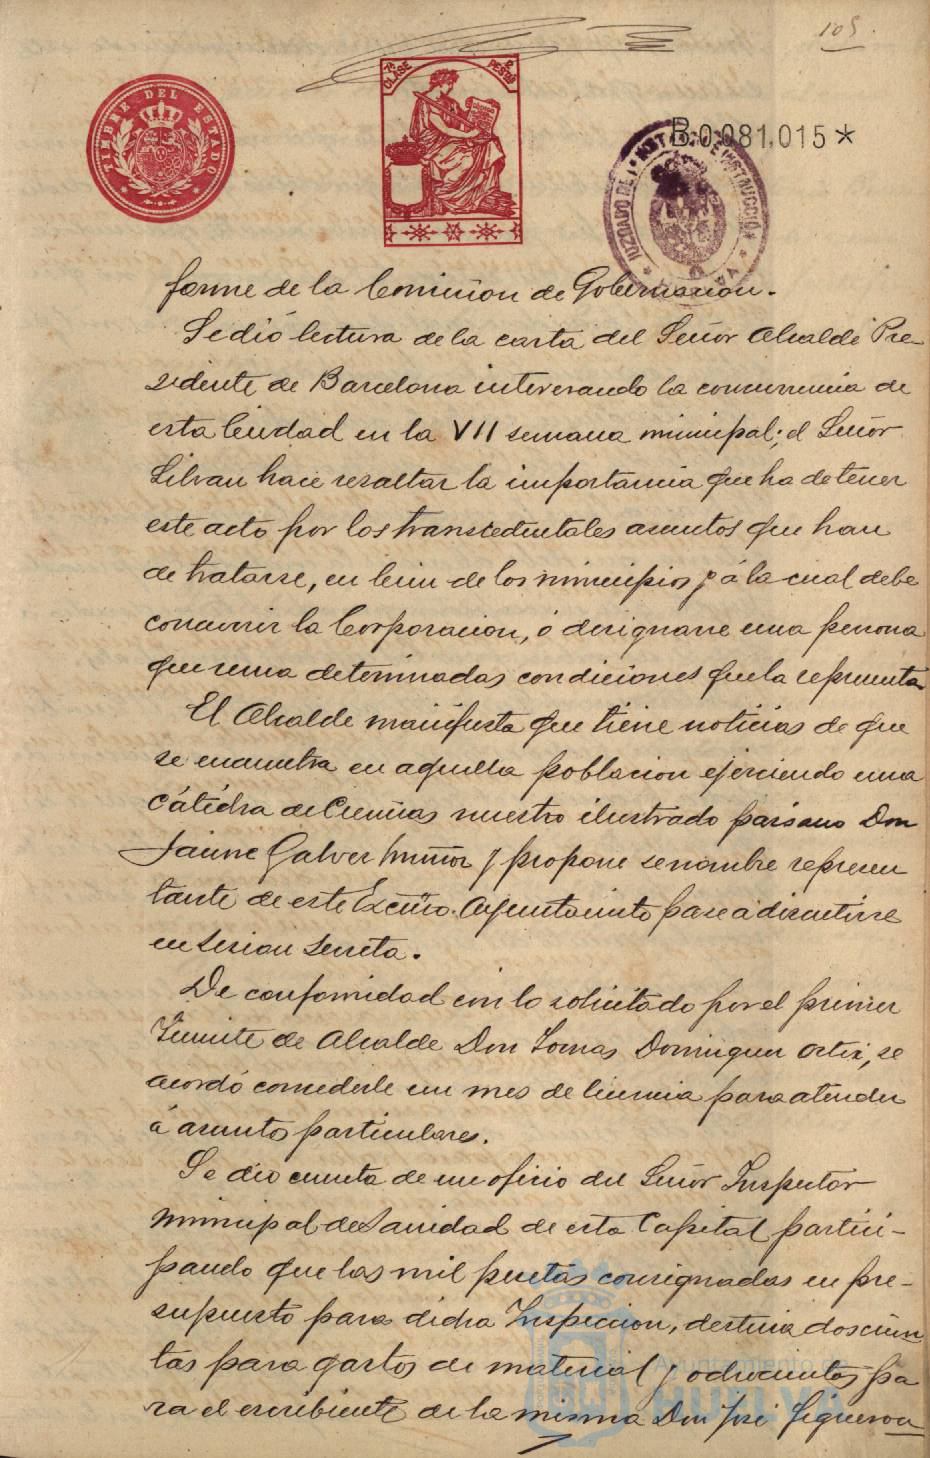 105.
TIMBRE DEL ESTADO
7ª CLASE 2 PESTAS
B.0.081,015*
JUZGADO DE INSTRUCCIÓN
forme de la Comision de Gobernacion.
Se dió lectura de la carta del Señor Alcalde Pre-
sidente de Barcelona interesando la concurrencia de
esta Ciudad en la VII semana municipal; el Señor
Silvan hace resaltar la importancia que ha de tener
este acto por los transcedentales asuntos que han
de tratarse, en bien de los municipios y á la cual debe
concurrir la Corporacion, ó designarse una persona
que reuna determinadas condiciones que la representa
El Alcalde manifiesta que tiene noticias de que
se encuentra en aquella poblacion ejerciendo una
cátedra de Ciencias nuestro ilustrado paisano Don
Jaime Galvez Muñoz y propone se nombre represen
tante de este Excmo. Ayuntamiento pase a discutirse
en sesion secreta.
De conformidad con lo solicitado por el primer
Teniente de Alcalde Don Tomas Dominguez Ortiz, se
acordó concederle un mes de licencia para atender
á asuntos particulares.
Se dió cuenta de un oficio del Señor Inspector
municipal de Sanidad de esta Capital partici-
pando que las mil pesetas consignadas en pre-
supuesto para dicha Inspeccion, destina doscien
tas para gastos de material y ochocientas pa
ra el escribiente de la misma Don José Figueroa
Ayuntamiento de
HUELVA